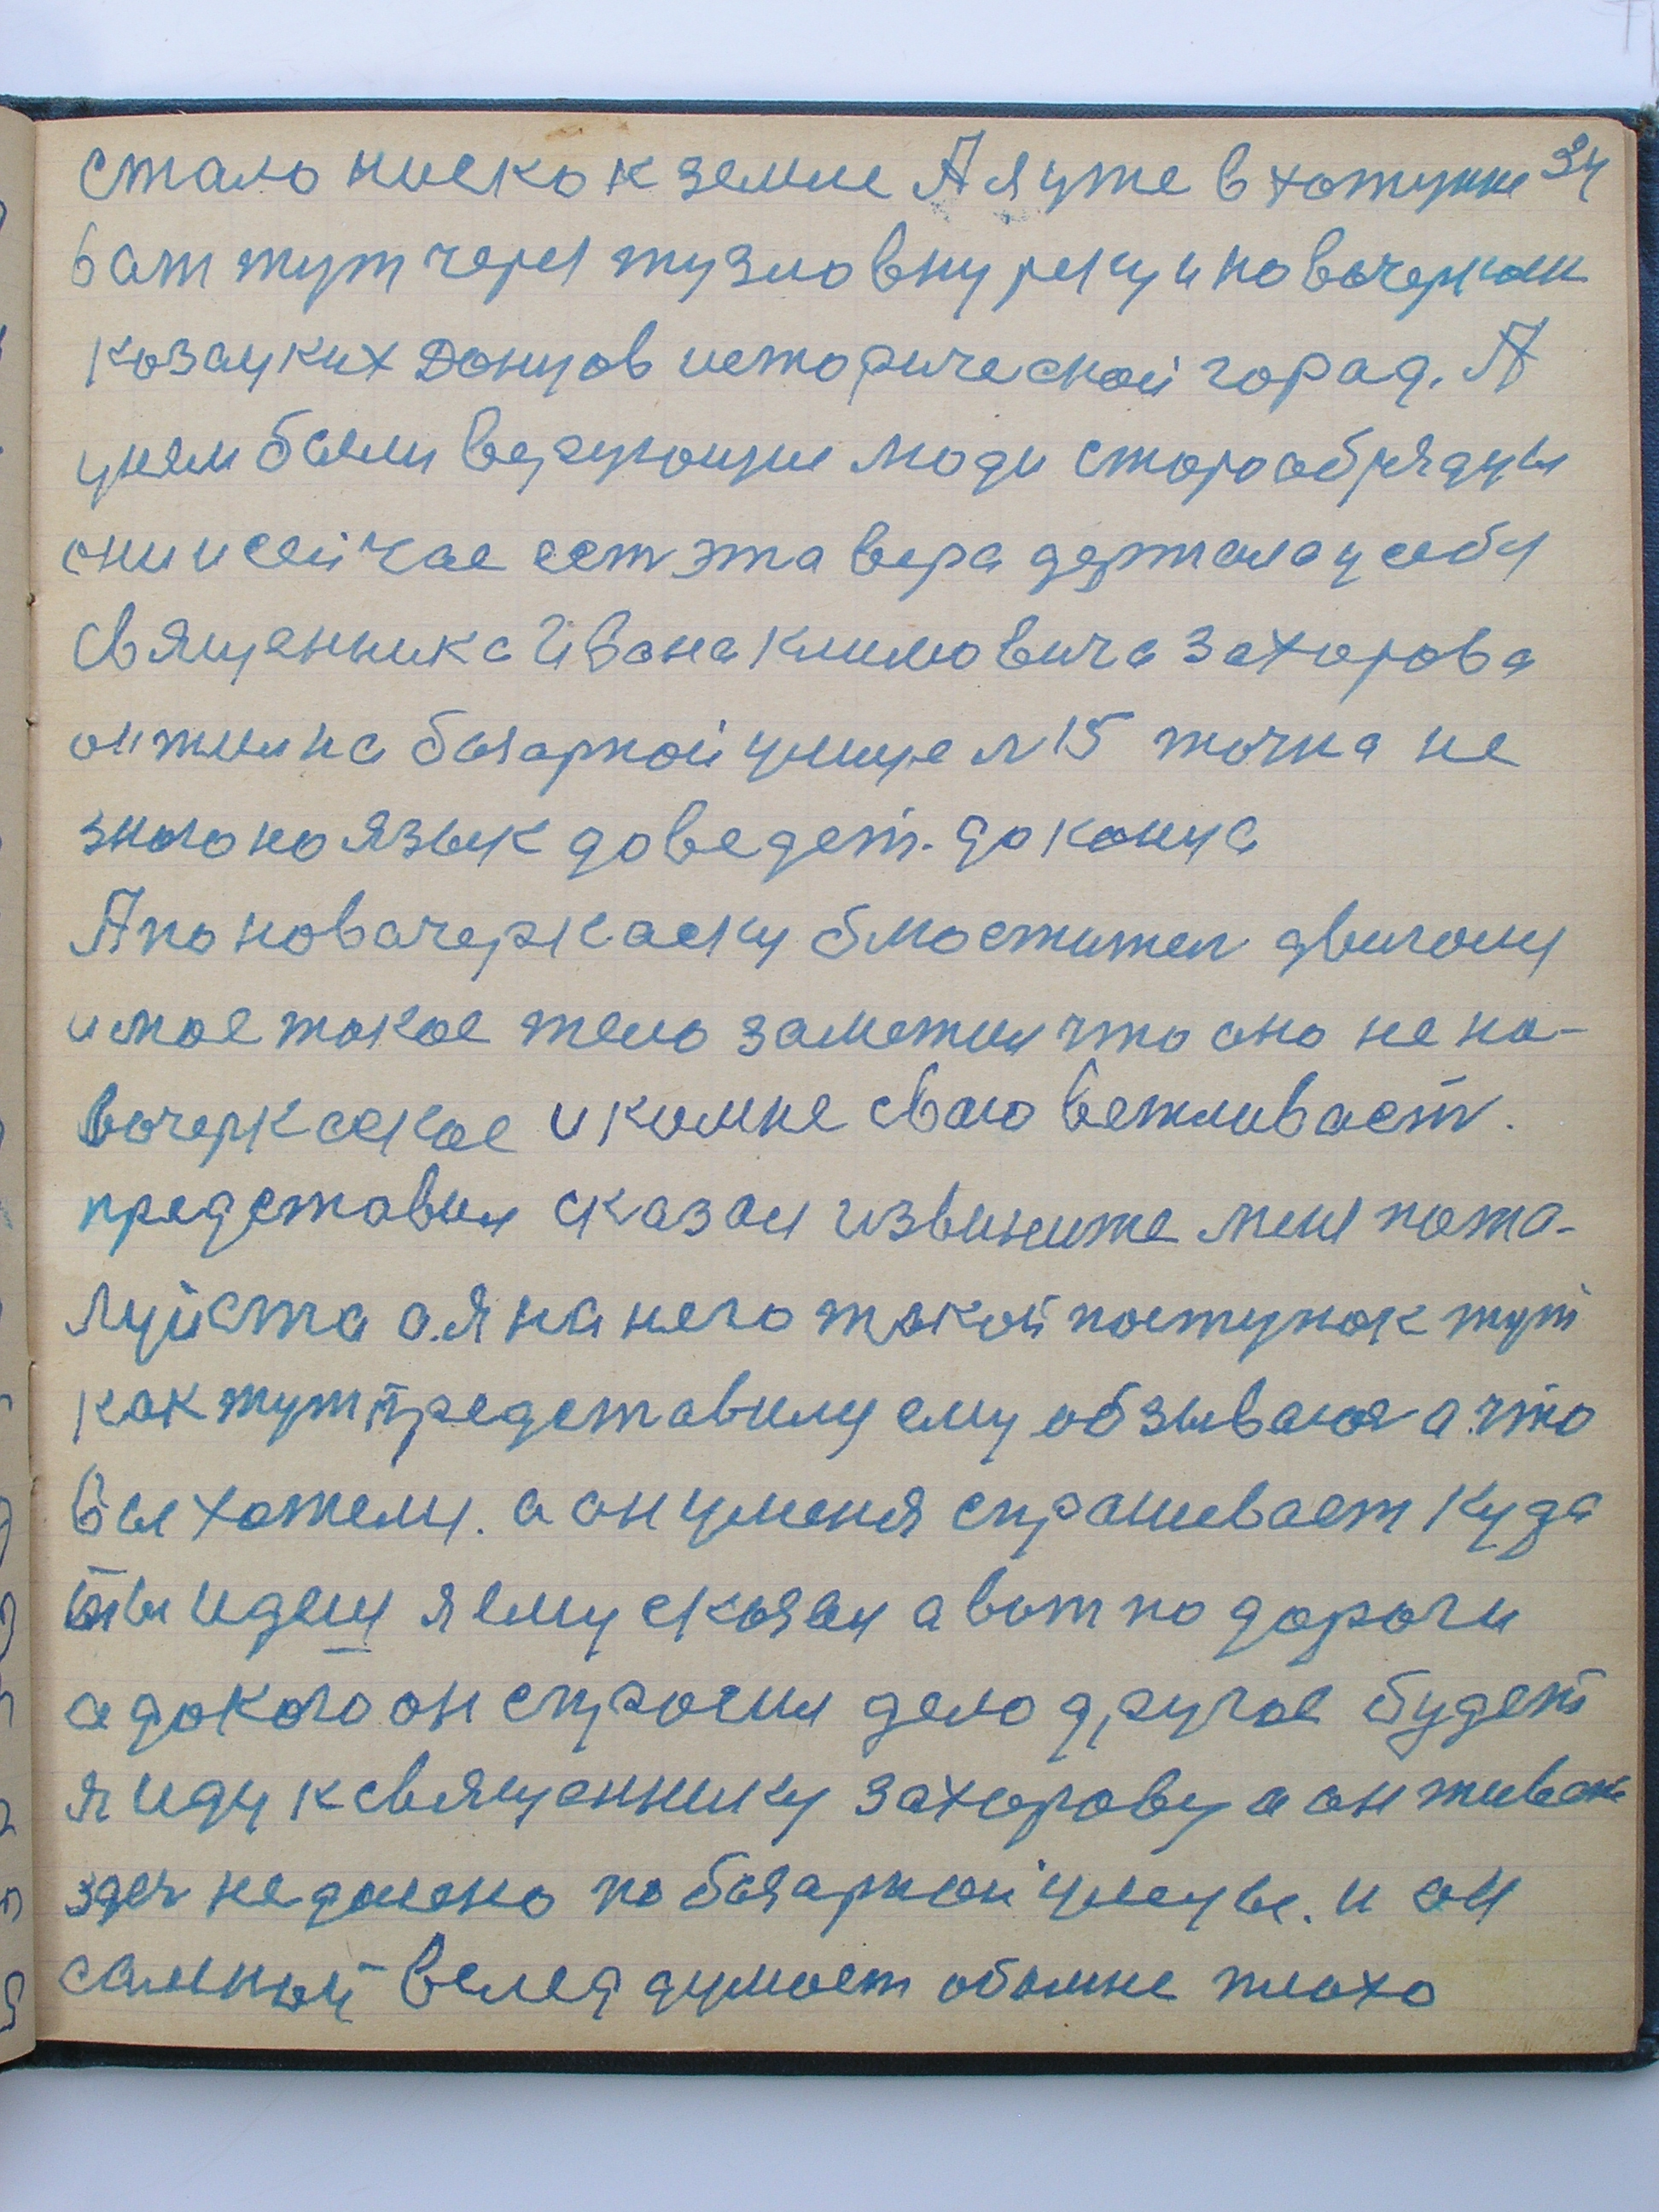 стало ниско к земле А я уже в хотунке 34
вот тут через тузловку реку и новочеркаск
козацких донцов исторической горад. А
унем были верующии люди старообрядцы
они и сейчас ест эта вера держала усебя
священника Ивана климовича захорова
он жил на боярской улице №15 точна не
знаю но язык доведет. до конца
А по новочеркаску блюстител движения
и мое такое тело заметил что оно не но-
вочеркаское и комне сваю вежливаст.
представил сказал извините меня пожа-
луйста а я на него такой поступок тут
как тут представил ему обзываюя а что
вы хотели. а он уменя спрашивает куда
ты идеш я ему сказал а вот по дороги
а докого он спросил дело другое будет
я иду к священнику захорову а он живет
здеч недалеко по боярской улецы. и он
самной велед думает обомне плохо